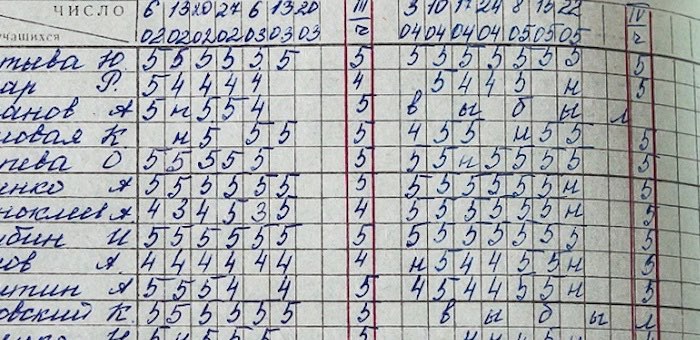 ЧИСЛО 6 13 20 27 6 13 20 III 3 10 17 24 8 15 22 IV
учащихся 02 02 02 02 03 03 03 ч 04 04 04 04 05 05 05 ч
Ю. 5 5 5 5 5 5 5 5 5 5 5 5 5 5 5
ар Р. 5 4 4 4 4 4 5 4 4 5 н 5
анов А 5 н 5 5 4 5 в ы б ы л
овая К н 5 5 5 5 4 5 5 н 5 5 5
ева О 5 5 5 5 5 5 5 5 н 5 5 5 5 5
енко А 5 5 5 5 5 5 5 5 5 5 5 5 5 н 5
ноклеев А 4 3 4 5 3 5 4 5 5 5 5 5 5 н 5
убин И 5 5 5 5 5 5 5 5 5 5 5 5 5 5 5
ов А. 4 4 4 4 4 4 4 н 5 4 4 5 5 н 5
итин А 5 5 5 4 4 5 4 5 4 4 5 5 н 5
овский К. 5 5 5 5 5 5 5 в ы б ы л